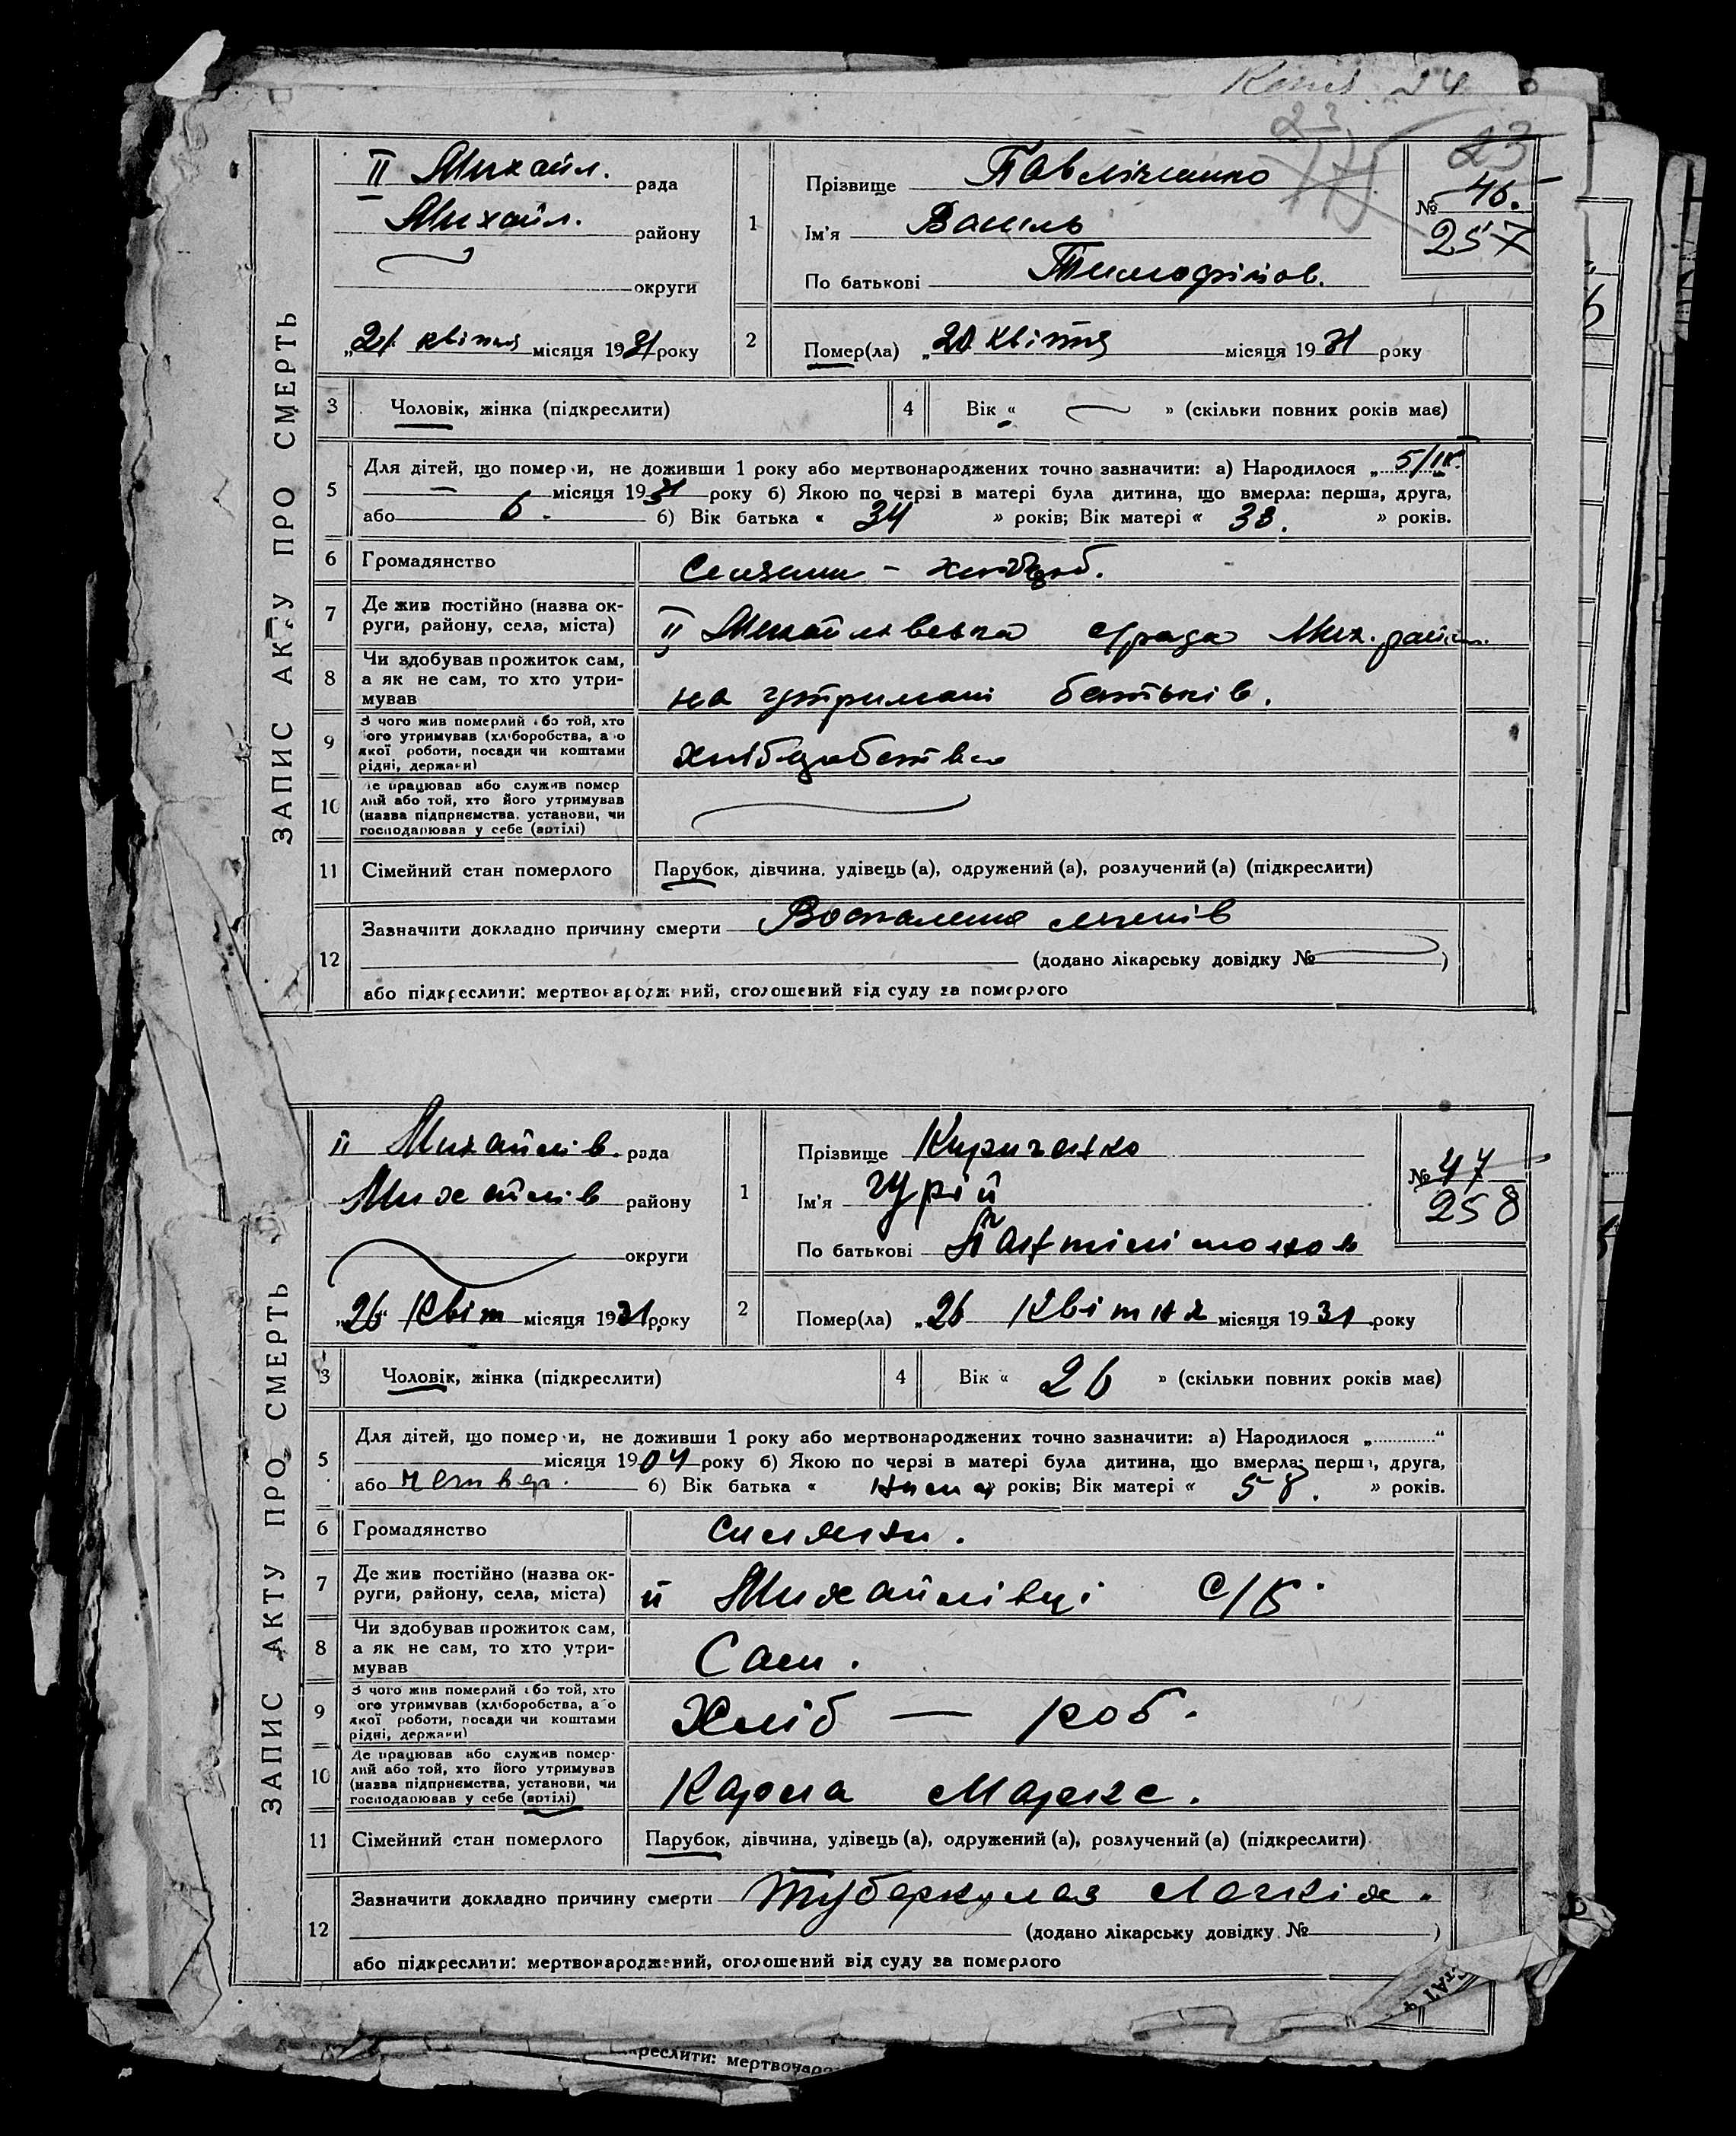 23
23
175
ЗАПИС АКТУ ПРО СМЕРТЬ
II Михайл. рада
Михайл. району
округи
„21 квітня місяця 1931 року
1
Прізвище Павліченко
Ім'я Василь
По батькові Тимофійов.
№ 46.
257
2
Помер(ла) „20 квітня місяця 1931 року
3
Чоловік, жінка (підкреслити)
4
Вік « » (скільки повних років має)
5
Для дітей, що померли, не доживши 1 року або мертвонароджених точно зазначити: а) Народилося „5/IV
місяця 1931 року б) Якою по черзі в матері була дитина, що вмерла: перша, друга,
або 6. б) Вік батька « 34 » років; Вік матері « 38. » років.
6
Громадянство Селянин - хлібороб.
7
Де жив постійно (назва ок-
руги, району, села, міста)
II Михайлівська с/рада Мих. район.
8
Чи здобував прожиток сам,
а як не сам, то хто утри-
мував
на утримані батьків.
9
З чого жив померлий або той, хто
його утримував (хліборобства, або
якої роботи, посади чи коштами
рідні, держави)
10
Де працював або служив помер
лий або той, хто його утримував
(назва підприємства, установи, чи
господарював у себе (артілі)
11
Сімейний стан померлого Парубок, дівчина, удівець (а), одружений (а), розлучений (а) (підкреслити)
12
Зазначити докладно причину смерти Воспаление легенів
(додано лікарську довідку № )
або підкреслити: мертвонароджений, оголошений від суду за померлого
ЗАПИС АКТУ ПРО СМЕРТЬ
II Михайлів. рада
Михайлів району
округи
„26“ Квіт місяця 1931 року
1
Прізвище Кириченко
Ім'я Гурій
По батькові
№ 47
258
2
Помер(ла) „26 Квітня місяця 1931 року
3
Чоловік, жінка (підкреслити)
4
Вік « 26 » (скільки повних років має)
5
Для дітей, що померли, не доживши 1 року або мертвонароджених точно зазначити: а) Народилося „ “
місяця 1904 року б) Якою по черзі в матері була дитина, що вмерла: перша, друга,
або четвер. б) Вік батька « нима » років; Вік матері « 58. » років.
6
Громадянство силянин.
7
Де жив постійно (назва ок-
руги, району, села, міста)
II Михайлівці С/Р.
8
Чи здобував прожиток сам,
а як не сам, то хто утри-
мував
Сам.
9
З чого жив померлий або той, хто
його утримував (хліборобства, або
якої роботи, посади чи коштами
рідні, держави)
Хліб — роб.
10
Де працював або служив помер-
лий або той, хто його утримував
(назва підприємства, установи, чи
господарював у себе (артілі)
Карла Маркс.
11
Сімейний стан померлого Парубок, дівчина, удівець (а), одружений (а), розлучений (а) (підкреслити)
12
Зазначити докладно причину смерти Туберкулаз Легкіх.
(додано лікарську довідку № )
або підкреслити: мертвонароджений, оголошений від суду за померлого